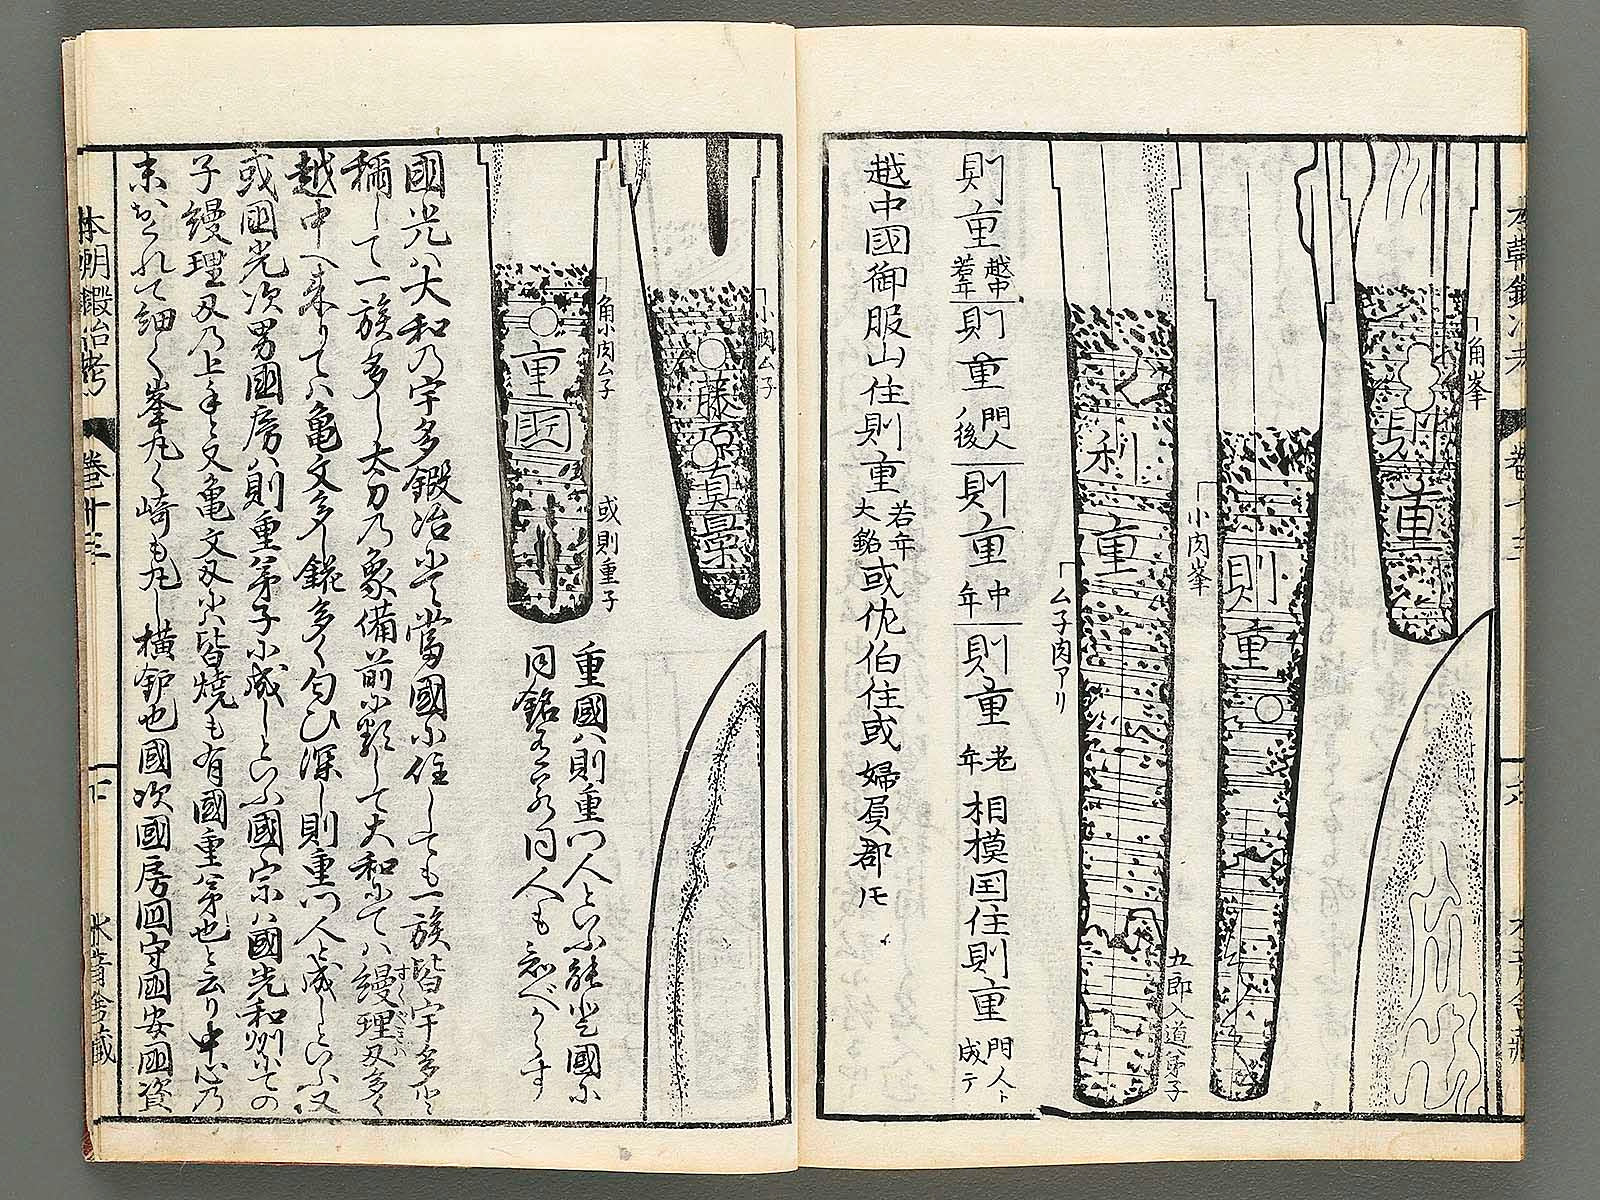 角峯
則重
小肉峯
則重
ム子肉アリ
則重
五郎入道弟子
則重
越中
若年
則重
門人
後
則重
中
年
則重
老
年
相模国住則重
門人ト
成テ
越中國御服山住則重
若年
大銘
或佐伯住或婦負郡ﾊﾓ
小肉ム子
藤原真景
角小肉ム子
重国
或則重子
重國ハ則重門人といふ能登國に
同銘有若同人も知べからず
國光ハ大和乃宇多鍛冶にて當國に住しても一族皆宇多と
稱して一族多し太刀乃象備前に類して大和にてハ縵理刃多く
越中へ来りてハ亀文多し錵多く匂ひ深し則重門人と成しといふ又
或國光次男國房ハ則重弟子に成しといふ國宗ハ國光和州にての
子縵理刃乃上手と又亀文刃にハ皆燒も有國重ハ弟也と云り中心乃
末おくれて細く峯丸く崎も丸し横鈩也國次國房國守國安國資
本朝鍛冶考
巻十三
水青舎藏